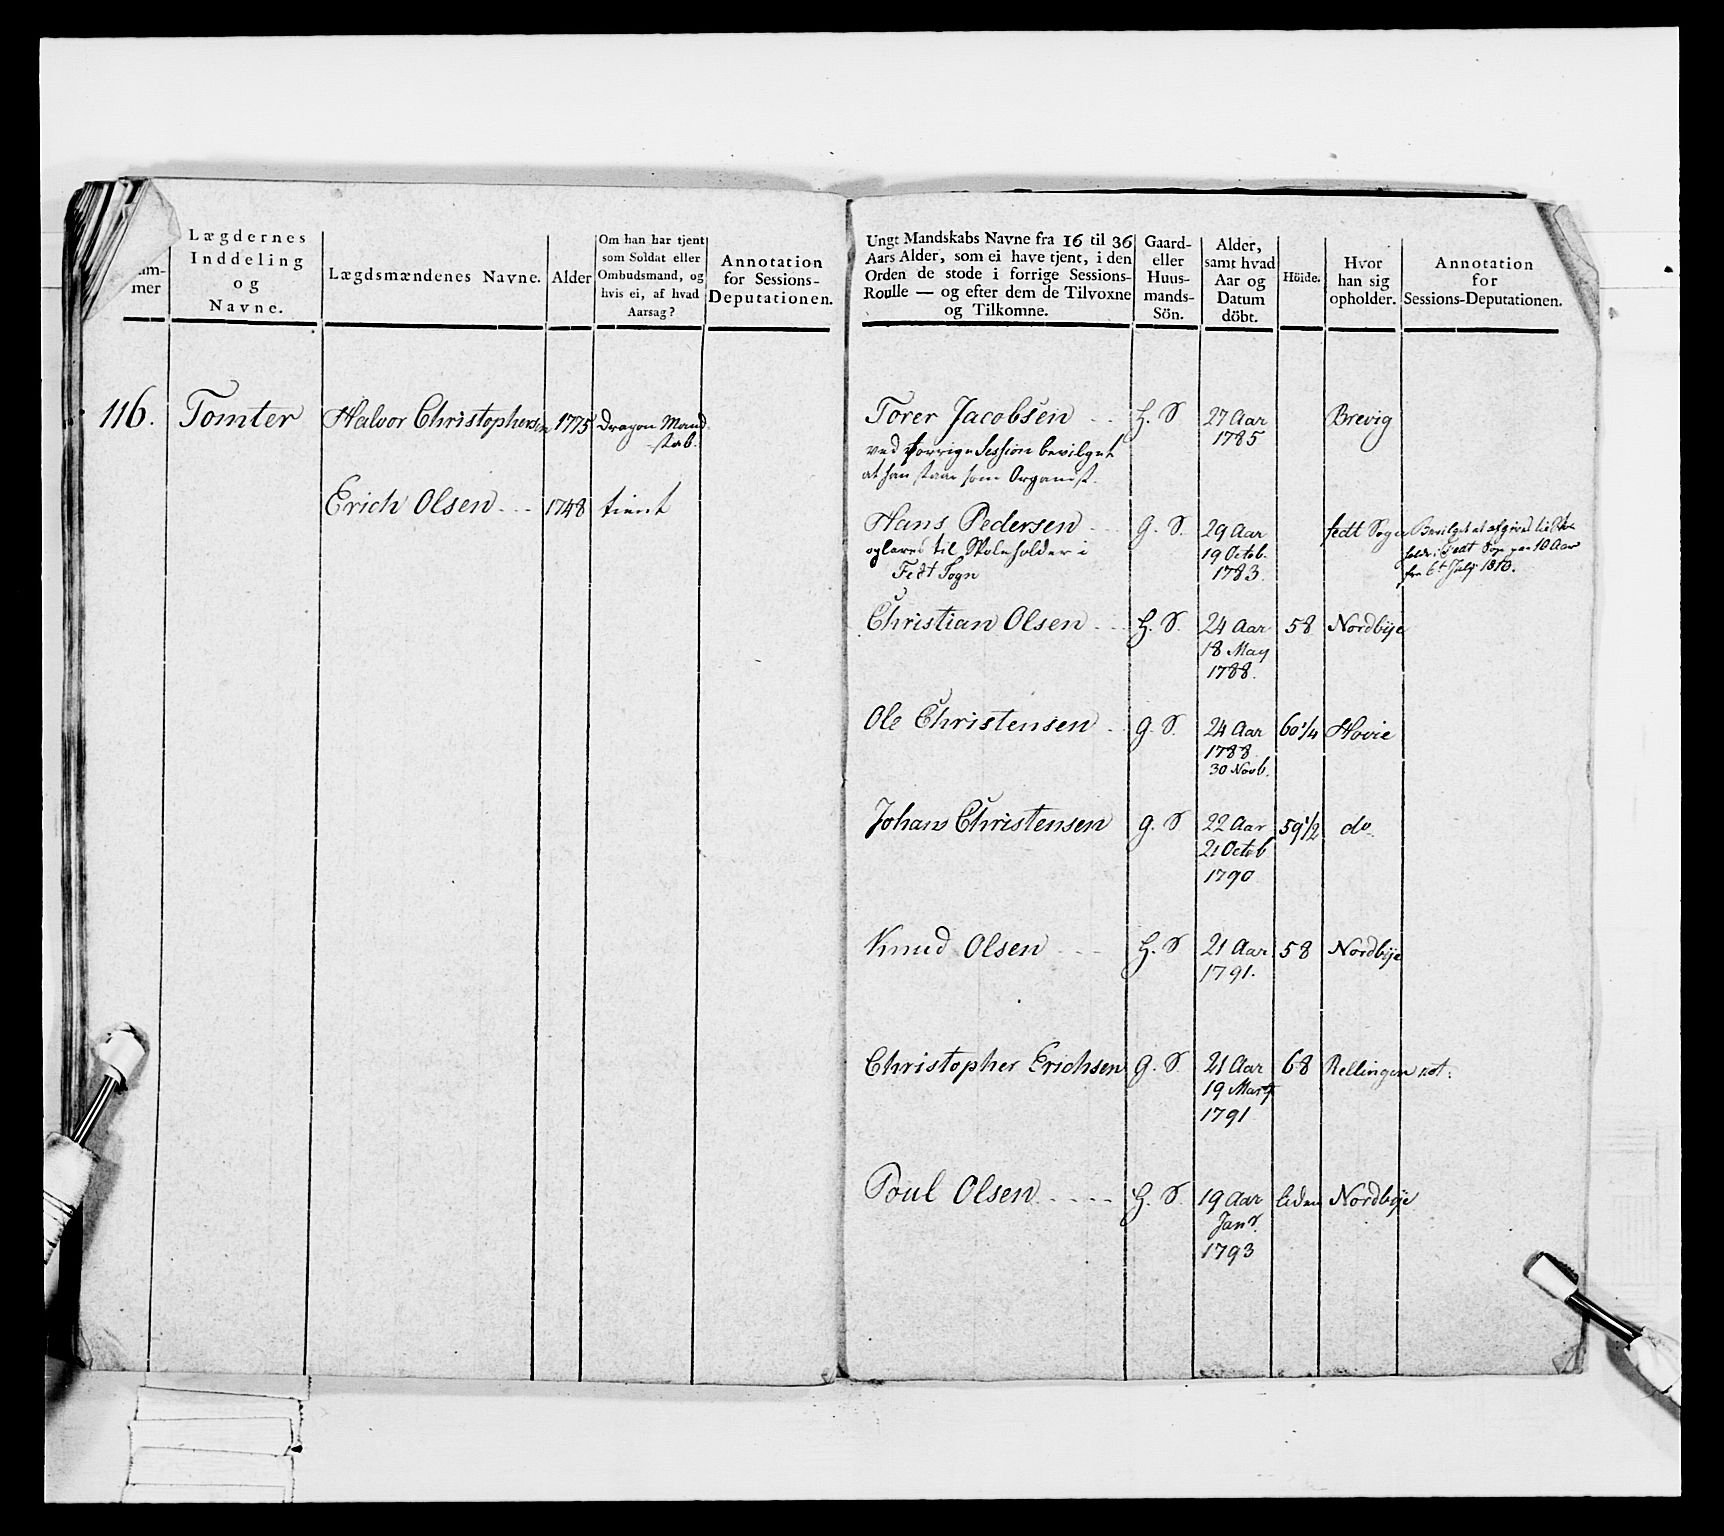 Lægdernes
Inddeling
og
Navne.
mer
Lægdsmændenes Navne.
Alder
Om han har tjent
som Soldat eller
Ombudsmand, og
hvis ei, af hvad
Aarsag?
Annotation
for Sessions-
Deputationen.
116.
Tomter
Halvor Christophersen
1775
Dragon Mand
skab.
Erich Olsen
1748
tient
Ungt Mandskabs Navne fra 16 til 36
Aars Alder, som ei have tjent, i den
Orden de stode i forrige Sessions-
Roulle — og efter dem de Tilvoxne
og Tilkomne.
Gaard-
eller
Huus-
mands-
Sön.
Alder,
samt hvad
Aar og
Datum
döbt.
Höide.
Hvor
han sig
opholder.
Annotation
for
Sessions-Deputationen.
Torer Jacobsen
H. S
27 Aar
1785
Brevig
ved forrige Session bevilget
at han staar som Organist.
Hans Pedersen
G. S.
29 Aar
19 Octob.
1783.
Fedt Sogn
oplæres til Skoleholder i
Fedt Sogn
Bevilget at afgives til Skole
holder i Fedt Sogn paa 10 Aar
fra 6t July 1810.
Christian Olsen
H. S.
24 Aar
18 May
1788.
58
Nordbye
Ole Christensen
G. S.
24 Aar
1788
30 Novb.
60 1/4
Hovie
Johans Christensen
G. S
22 Aar
21 Octob
1790
59 1/2
do
Knud Olsen
H. S
21 Aar
1791.
58
Nordbye
Christopher Erichsen
G. S
21 Aar
19 Marty
1791
68
Rellingen
Poul Olsen
H. S.
19 Aar
Janr.
1793
liden
Nordbye